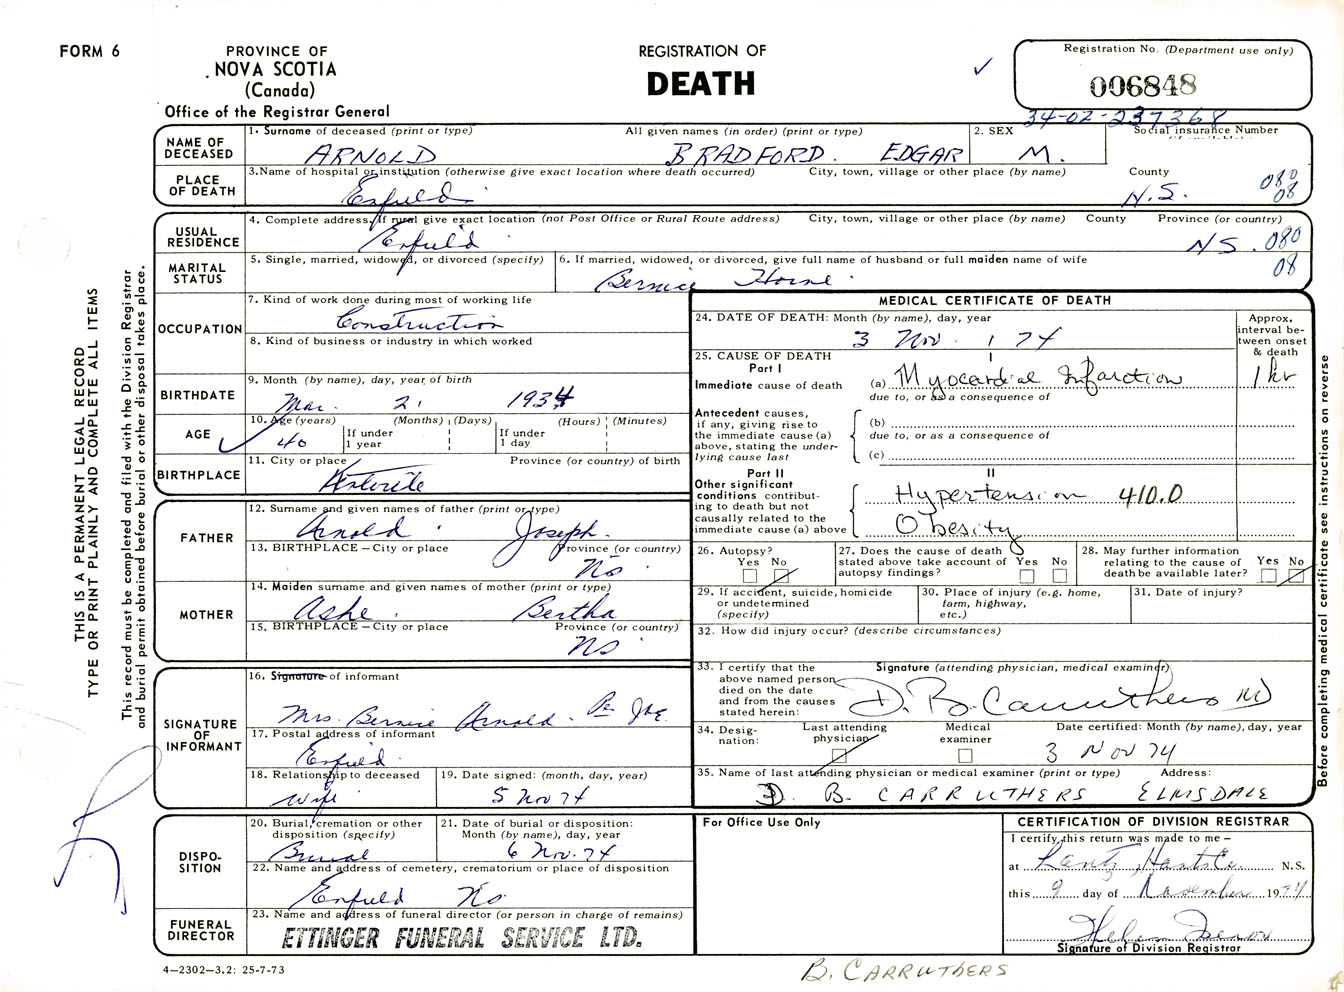 FORM 6
PROVINCE OF
NOVA SCOTIA
(Canada)
Office of the Registrar General
REGISTRATION OF
DEATH
✓
Registration No. (Department use only)
006848
34-02-237368
NAME OF DECEASED
1. Surname of deceased (print or type) All given names (in order) (print or type) 2. SEX Social insurance Number
ARNOLD BRADFORD. EDGAR M.
PLACE OF DEATH
3. Name of hospital or institution (otherwise give exact location where death occurred) City, town, village or other place (by name) County
Enfield N.S. 080
08
USUAL RESIDENCE
4. Complete address. If rural give exact location (not Post Office or Rural Route address) City, town, village or other place (by name) County Province (or country)
Enfield NS. 080
08
MARITAL STATUS
5. Single, married, widowed, or divorced (specify) 6. If married, widowed, or divorced, give full name of husband or full maiden name of wife
Bernice Horne
OCCUPATION
7. Kind of work done during most of working life
Construction
8. Kind of business or industry in which worked
BIRTHDATE
9. Month (by name), day, year of birth
Mar. 2, 1934
AGE
10. Age (years) (Months) (Days) (Hours) (Minutes)
40 If under 1 year If under 1 day
BIRTHPLACE
11. City or place Province (or country) of birth
FATHER
12. Surname and given names of father (print or type)
Arnold Joseph.
13. BIRTHPLACE – City or place Province (or country)
NS
MOTHER
14. Maiden surname and given names of mother (print or type)
Ashe. Bertha
15. BIRTHPLACE – City or place Province (or country)
NS
SIGNATURE OF INFORMANT
16. Signature of informant
Mrs. Bernice Arnold. Per JGE.
17. Postal address of informant
Enfield.
18. Relationship to deceased 19. Date signed: (month, day, year)
wife 5 Nov 74
DISPOSITION
20. Burial, cremation or other disposition (specify) 21. Date of burial or disposition: Month (by name), day, year
Burial 6 Nov. 74
22. Name and address of cemetery, crematorium or place of disposition
Enfield NS.
FUNERAL DIRECTOR
23. Name and address of funeral director (or person in charge of remains)
ETTINGER FUNERAL SERVICE LTD.
4–2302–3.2: 25-7-73
MEDICAL CERTIFICATE OF DEATH
24. DATE OF DEATH: Month (by name), day, year
3 Nov. 74
Approx. interval between onset & death
25. CAUSE OF DEATH I
Part I
Immediate cause of death (a) Myocardial Infarction 1 hr
due to, or as a consequence of
Antecedent causes, if any, giving rise to the immediate cause (a) above, stating the underlying cause last
(b)
due to, or as a consequence of
(c)
Part II II
Other significant conditions contributing to death but not causally related to the immediate cause (a) above
Hypertension 410.0
Obesity
26. Autopsy? Yes No
27. Does the cause of death stated above take account of autopsy findings? Yes No
28. May further information relating to the cause of death be available later? Yes No
29. If accident, suicide, homicide or undetermined (specify)
30. Place of injury (e.g. home, farm, highway, etc.)
31. Date of injury?
32. How did injury occur? (describe circumstances)
33. I certify that the above named person died on the date and from the causes stated herein:
Signature (attending physician, medical examiner)
D. B. Carruthers MD
34. Designation: Last attending physician Medical examiner Date certified: Month (by name), day, year
3 Nov 74
35. Name of last attending physician or medical examiner (print or type) Address:
D. B. CARRUTHERS ELMSDALE
For Office Use Only
CERTIFICATION OF DIVISION REGISTRAR
I certify this return was made to me –
at Lantz, Hants Co. N.S.
this 9 day of November 1974
Helen
Signature of Division Registrar
B. CARRUTHERS
THIS IS A PERMANENT LEGAL RECORD
TYPE OR PRINT PLAINLY AND COMPLETE ALL ITEMS
This record must be completed and filed with the Division Registrar
and burial permit obtained before burial or other disposal takes place.
Before completing medical certificate see instructions on reverse